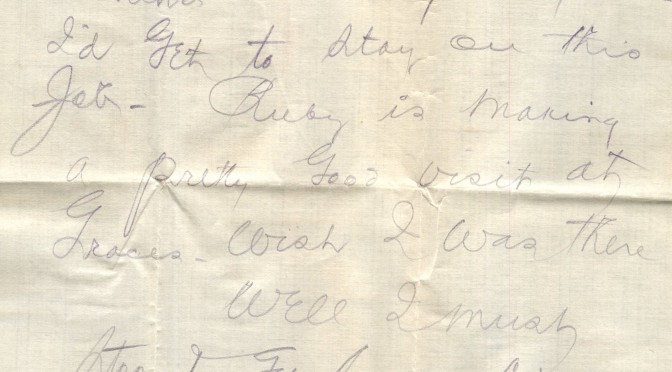 I'd Get to Stay on this
Job - Ruby is making
a pretty Good visit at
Graces - Wish I was there
Well I must